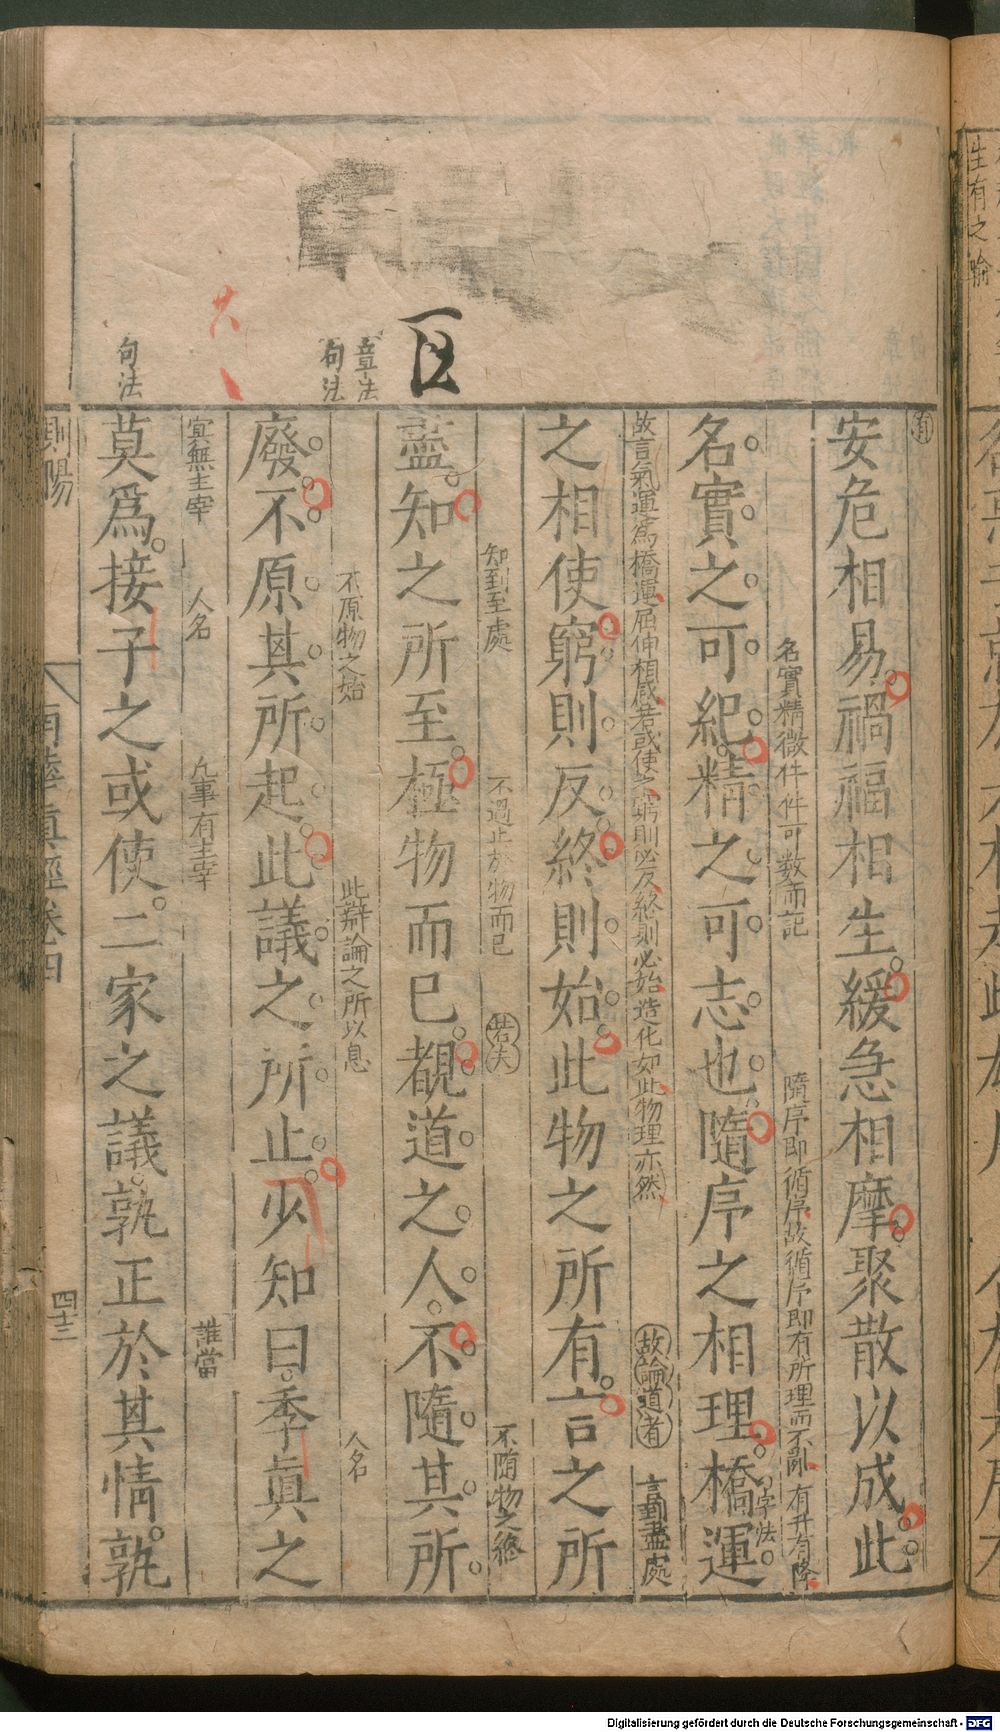 生有之喻
章法
句法
句法
有
安危相易禍福相生緩急相摩聚散以成此
名實精微件件可數而記
隨序即循序故循序即有所理而不亂有升有降
名實之可紀精之可志也隨序之相理橋運
字法
故言氣運爲橋運屈伸相感若或使之窮則必反終則必始造化如此物理亦然
故論道者
言到盡處
之相使窮則反終則始此物之所有言之所
知到至處
不過止於物而已
若夫
不隨物之終
盡知之所至極物而已覩道之人不隨其所
不原物之始
此辯論之所以息
人名
廢不原其所起此議之所止少知曰季眞之
宜無主宰
人名
凡事有主宰
誰當
莫爲接子之或使二家之議孰正於其情孰
則陽
南華眞經卷四
四十三
Digitalisierung gefördert durch die Deutsche Forschungsgemeinschaft - DFG